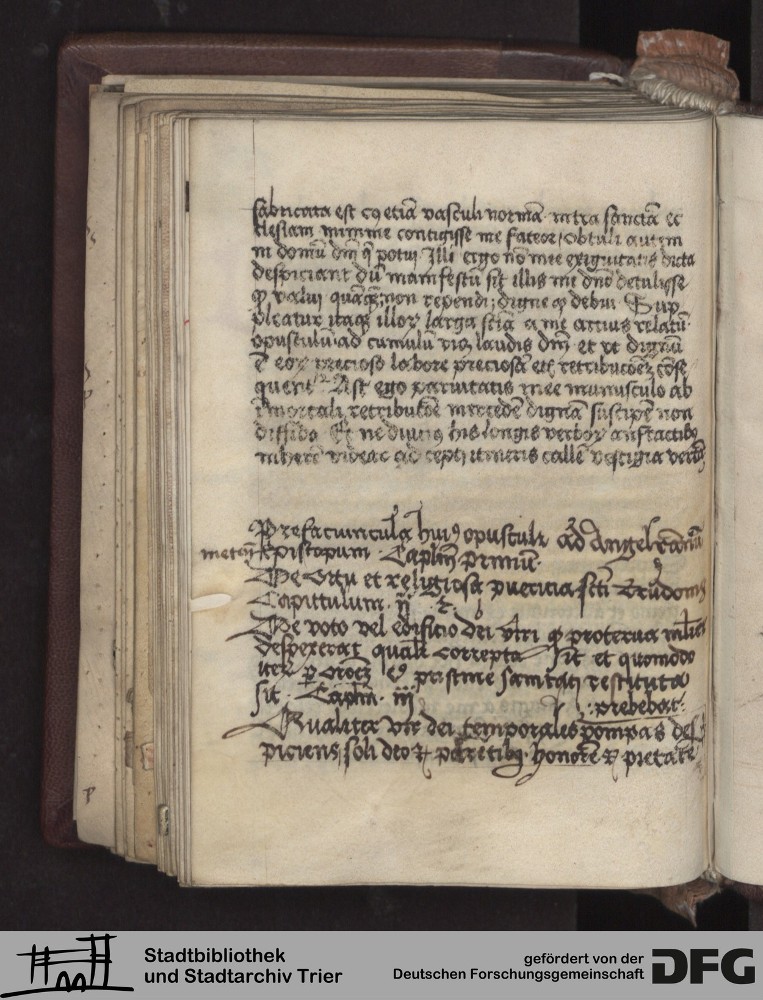 fabricata est eꝯ etiā vasculi normā intra sanctā ec
clesiam minime contigisse me fateor / obtuli autem
in domū dm̄ ꝙ potui Illi ergo nō mee exiguitatis dicta
despiciant dū manifestū sit illis me dn̄o detulisse
ꝙ valui quāꝙ non rependi digne ꝙ debui Sup
pleatur itaqꝫ illoꝝ larga sciā a me artius relatū
opusculū ad cumulū laudis dm̄ et ut dignū
ē eoꝝ precioso labore preciosā retributōeꝫ cōse
quent᷑ Ast ego paruitatis mee munusculo ab
īmortali retributōe mercedē dignā suscipē non
diffido Et ne diutiꝯ his longis verboꝝ anfractibꝯ
inherē videar ad cepti itineris callē vestigia
Prefaciuncula huiꝯ opusculi ad Angelrānū
metēn Episcopum Caplm̄ Primū
De Ortu et religiosa puericia scti Trudonis
Capittulum ij
De voto vel edificio dei viri ꝙ proterua mulier
despexerat qualr correpta sit et quomodo
iteꝝ ꝑ oroēꝫ eiꝯ pristine sanitati restituta
sit Caplm iij
prebebat
Qualiter vir dei temporales pompas des
piciens soli deo ꝛ parētibꝯ honorē ꝛ pietatē
Stadtbibliothek
und Stadtarchiv Trier
gefördert von der
Deutschen Forschungsgemeinschaft
DFG